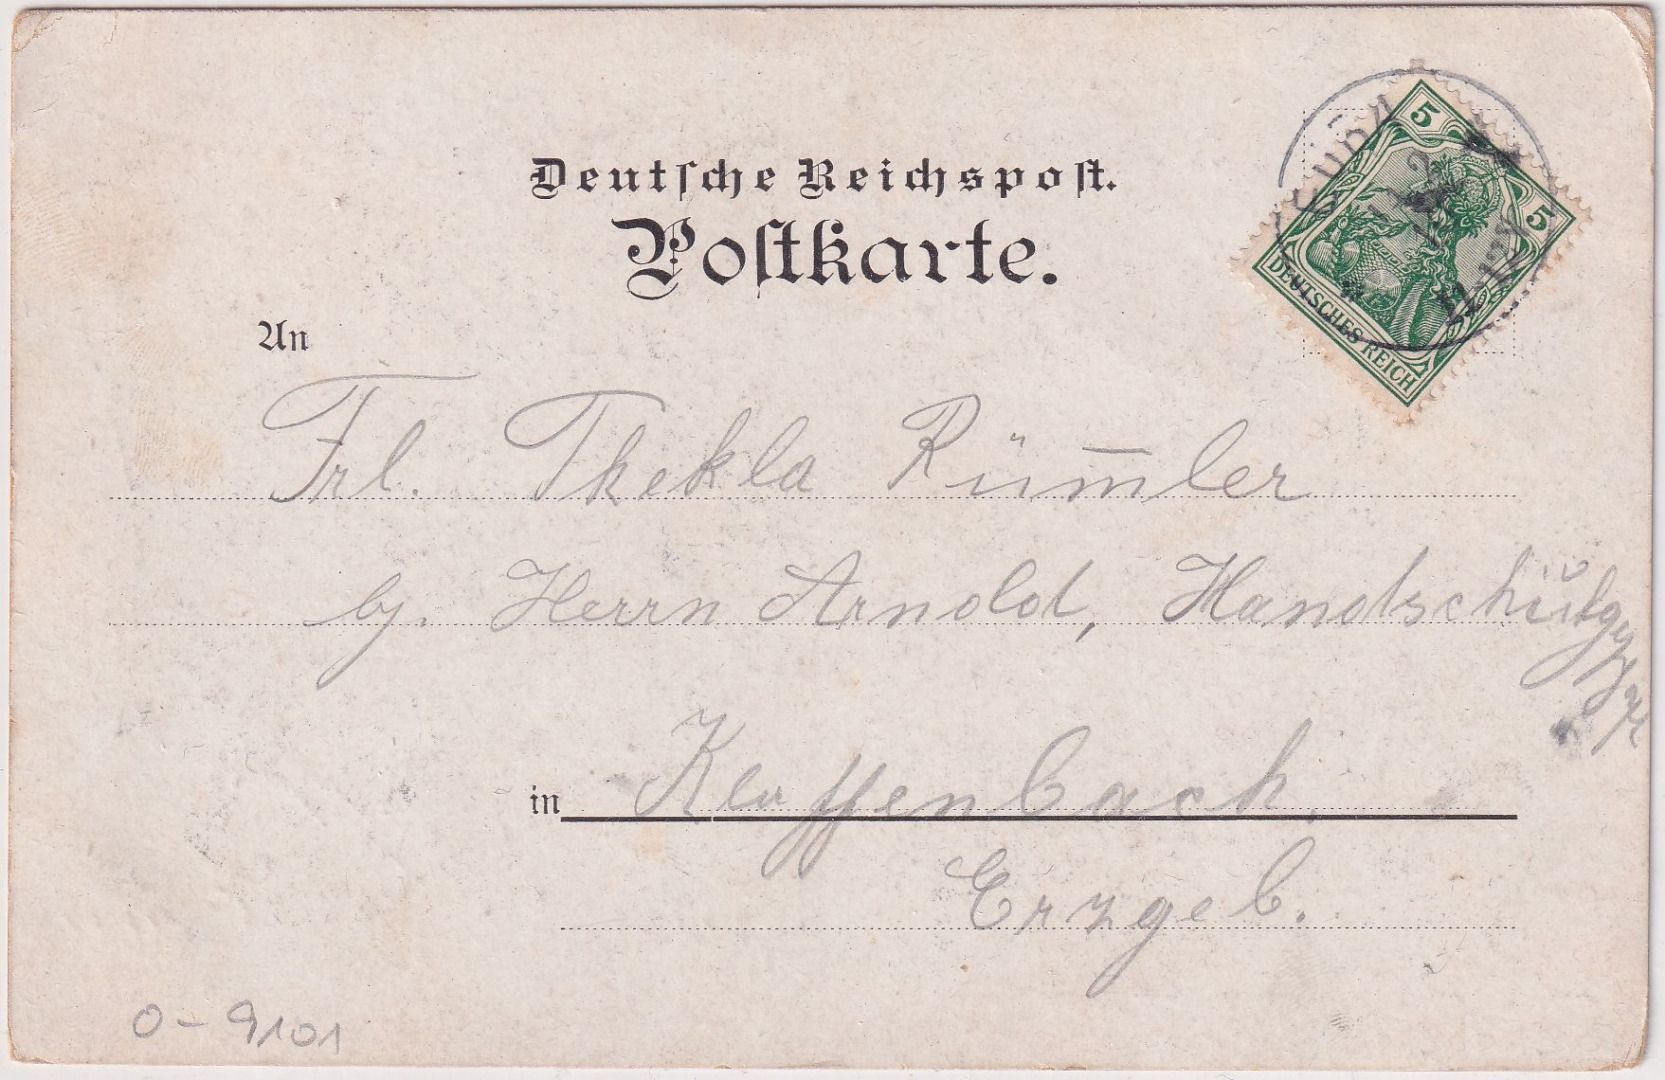 Deutsche Reichspost.
Postkarte.
5
5
DEUTSCHES REICH
An
Frl. Thekla Rüm̅ler
bj. Herrn Arnold,
in Klaffenbach
Erzgeb.
0-9101